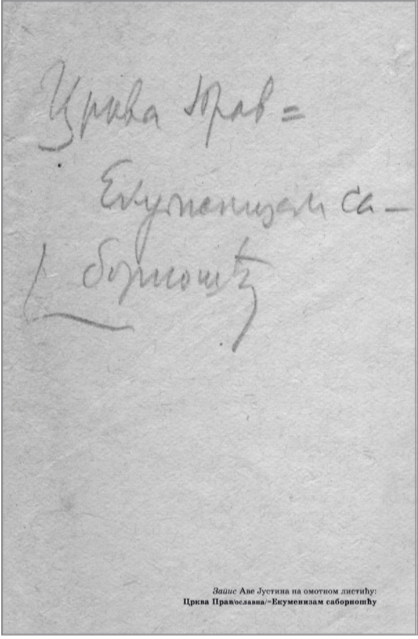 Црква Прав =
Екуменизам са –
борношћу
Запис Аве Јустина на омотном листићу:
Црква Прав/ославна/=Екуменизам саборношћу